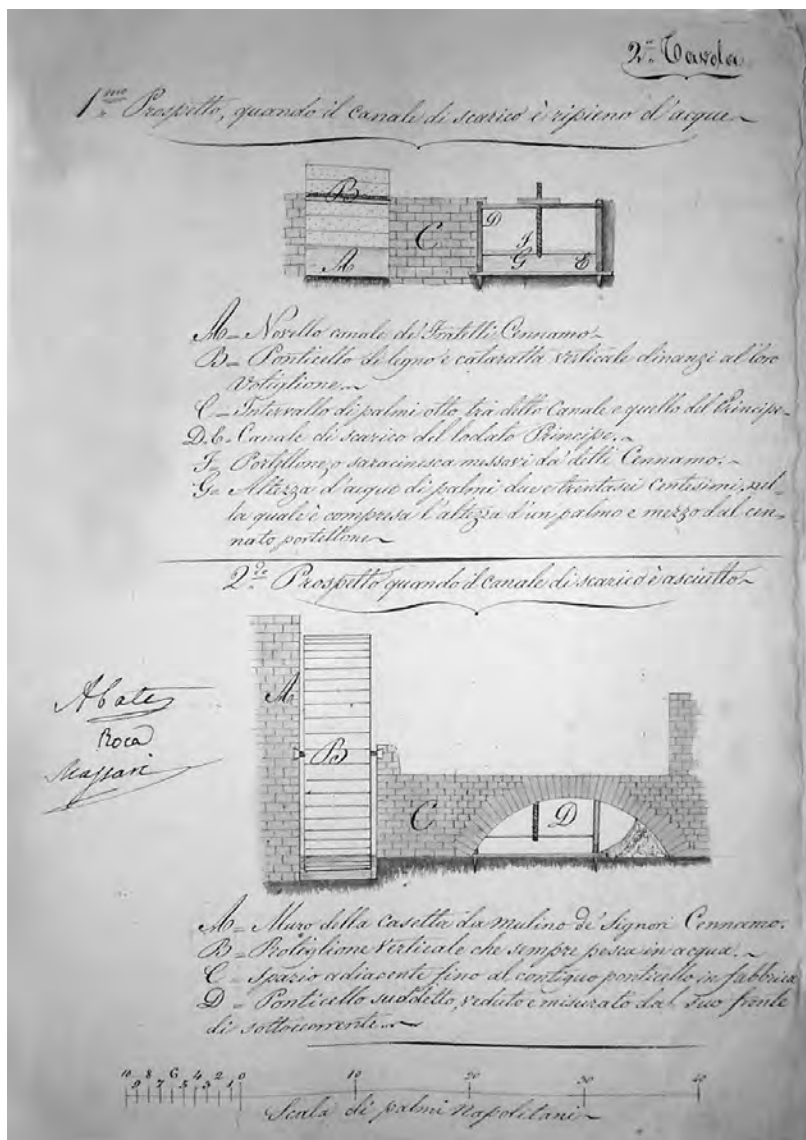 2.ª Tavola
1.mo Prospetto, quando il canale di scarico è ripieno d'acque
B
C
A
D
F
G
E
A = Novello canale de' Fratelli Cennamo
B = Ponticello di legno e cataratta verticale dinanzi al loro
Votiglione
C = Intervallo di palmi otto tra detto Canale e quello del Principe
D.E. = Canale di scarico del lodato Principe.
F = Portellone, o saracinesca messavi da' detti Cennamo.
G = Altezza d'acque di palmi due e trentasei centesimi, nel-
la quale è compresa l'altezza d'un palmo e mezzo dal cen-
nato portellone
2.do Prospetto quando il canale di scarico è asciutto
A
B
C
D
Abate
Roca
Massari
A = Muro della casetta da mulino de' Signori Cennamo.
B = Rotiglione verticale che sempre pesca in acqua.
C = Spazio adiacente fino al contiguo ponticello in fabbrica
D = Ponticello suddetto, veduto e misurato dal suo fronte
di sottocorrente
10 9 8 7 6 5 4 3 2 1 0 10 20 30 40
Scala di palmi napolitani